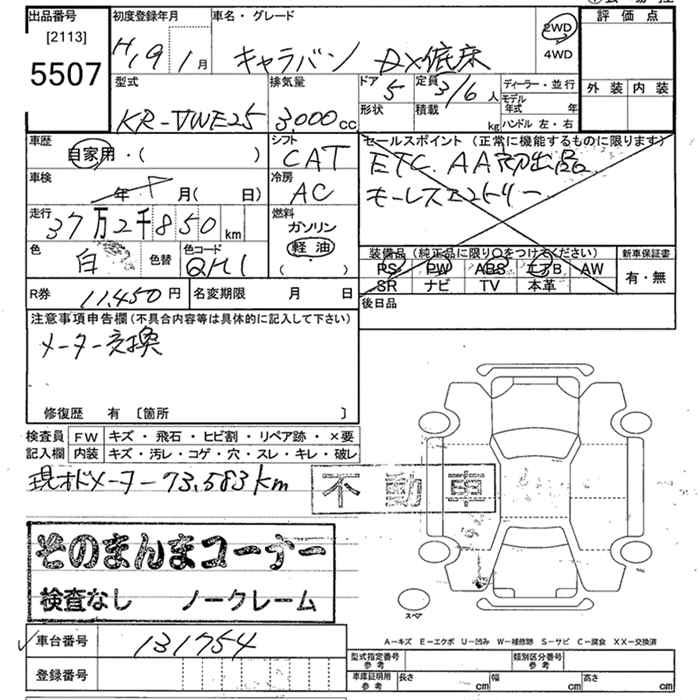 出品番号
[2113]
5507
初度登録年月
H19 1月
車名・グレード
キャラバン DX低床
2WD
4WD
評価点
外装 内装
型式
KR-VWE25
排気量
3,000cc
ドア
5
定員
3/6人
形状
積載
kg
ディーラー・並行
モデル年式 年
ハンドル 左・右
車歴
自家用・( )
シフト
CAT
セールスポイント (正常に機能するものに限ります)
ETC. AA初出品
キーレスエントリー
車検
年 月( 日)
冷房
AC
走行
37万2千850km
燃料
ガソリン
軽油
( )
色
白
色替
色コード
QM1
装備品 (純正品に限り○をつけてください)
PS PW ABS エアB AW
SR ナビ TV 本革
新車保証書
有・無
R券
11,450円
名変期限 月 日
後日品
注意事項申告欄(不具合内容等は具体的に記入して下さい)
メーター交換
修復歴 有 〔箇所 〕
検査員記入欄
FW キズ・飛石・ヒビ割・リペア跡・×要
内装 キズ・汚レ・コゲ・穴・スレ・キレ・破レ
現オドメーター73,583km
不動車
そのまんまコーナー
検査なし ノークレーム
スペア
車台番号
131754
登録番号
A-キズ E-エクボ U-凹み W-補修跡 S-サビ C-腐食 XX-交換済
型式指定番号 参考
類別区分番号 参考
車庫証明用 参考
長さ cm
幅 cm
高さ cm